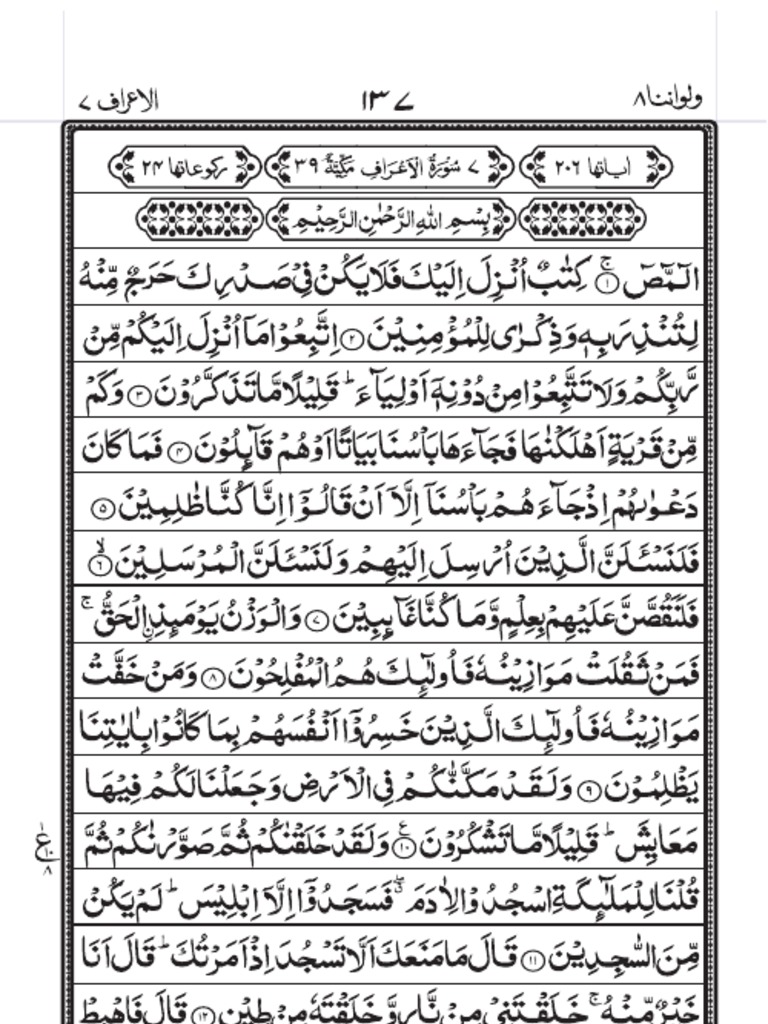 ولواننا ۸ ۱۳۷ الاعراف ۷
اٰیاتها ۲۰۶ ۷ سُوْرَةُ الْاَعْرَافِ مَكِّيَّةٌ ۳۹ ركوعاتها ۲۴
بِسْمِ اللّٰهِ الرَّحْمٰنِ الرَّحِيْمِ
الٓمّٓصٓ ۚ﴿۱﴾ كِتٰبٌ اُنْزِلَ اِلَيْكَ فَلَا يَكُنْ فِيْ صَدْرِكَ حَرَجٌ مِّنْهُ
لِتُنْذِرَ بِهٖ وَذِكْرٰى لِلْمُؤْمِنِيْنَ ﴿۲﴾ اِتَّبِعُوْا مَاۤ اُنْزِلَ اِلَيْكُمْ مِّنْ
رَّبِّكُمْ وَلَا تَتَّبِعُوْا مِنْ دُوْنِهٖۤ اَوْلِيَآءَ ؕ قَلِيْلًا مَّا تَذَكَّرُوْنَ ﴿۳﴾ وَكَمْ
مِّنْ قَرْيَةٍ اَهْلَكْنٰهَا فَجَآءَهَا بَاْسُنَا بَيَاتًا اَوْ هُمْ قَآئِلُوْنَ ﴿۴﴾ فَمَا كَانَ
دَعْوٰىهُمْ اِذْ جَآءَهُمْ بَاْسُنَاۤ اِلَّاۤ اَنْ قَالُوْۤا اِنَّا كُنَّا ظٰلِمِيْنَ ﴿۵﴾
فَلَنَسْـَٔلَنَّ الَّذِيْنَ اُرْسِلَ اِلَيْهِمْ وَلَنَسْـَٔلَنَّ الْمُرْسَلِيْنَ ۙ﴿۶﴾
فَلَنَقُصَّنَّ عَلَيْهِمْ بِعِلْمٍ وَّمَا كُنَّا غَآئِبِيْنَ ﴿۷﴾ وَالْوَزْنُ يَوْمَئِذِ ِۨالْحَقُّ ۚ
فَمَنْ ثَقُلَتْ مَوَازِيْنُهٗ فَاُولٰٓئِكَ هُمُ الْمُفْلِحُوْنَ ﴿۸﴾ وَمَنْ خَفَّتْ
مَوَازِيْنُهٗ فَاُولٰٓئِكَ الَّذِيْنَ خَسِرُوْۤا اَنْفُسَهُمْ بِمَا كَانُوْا بِاٰيٰتِنَا
يَظْلِمُوْنَ ﴿۹﴾ وَلَقَدْ مَكَّنّٰكُمْ فِي الْاَرْضِ وَجَعَلْنَا لَكُمْ فِيْهَا
مَعَايِشَ ؕ قَلِيْلًا مَّا تَشْكُرُوْنَ ﴿۱۰﴾ع وَلَقَدْ خَلَقْنٰكُمْ ثُمَّ صَوَّرْنٰكُمْ ثُمَّ
قُلْنَا لِلْمَلٰٓئِكَةِ اسْجُدُوْا لِاٰدَمَ ۖ فَسَجَدُوْۤا اِلَّاۤ اِبْلِيْسَ ؕ لَمْ يَكُنْ
مِّنَ السّٰجِدِيْنَ ﴿۱۱﴾ قَالَ مَا مَنَعَكَ اَلَّا تَسْجُدَ اِذْ اَمَرْتُكَ ؕ قَالَ اَنَا
خَيْرٌ مِّنْهُ ۚ خَلَقْتَنِيْ مِنْ نَّارٍ وَّخَلَقْتَهٗ مِنْ طِيْنٍ ﴿۱۲﴾ قَالَ فَاهْبِطْ